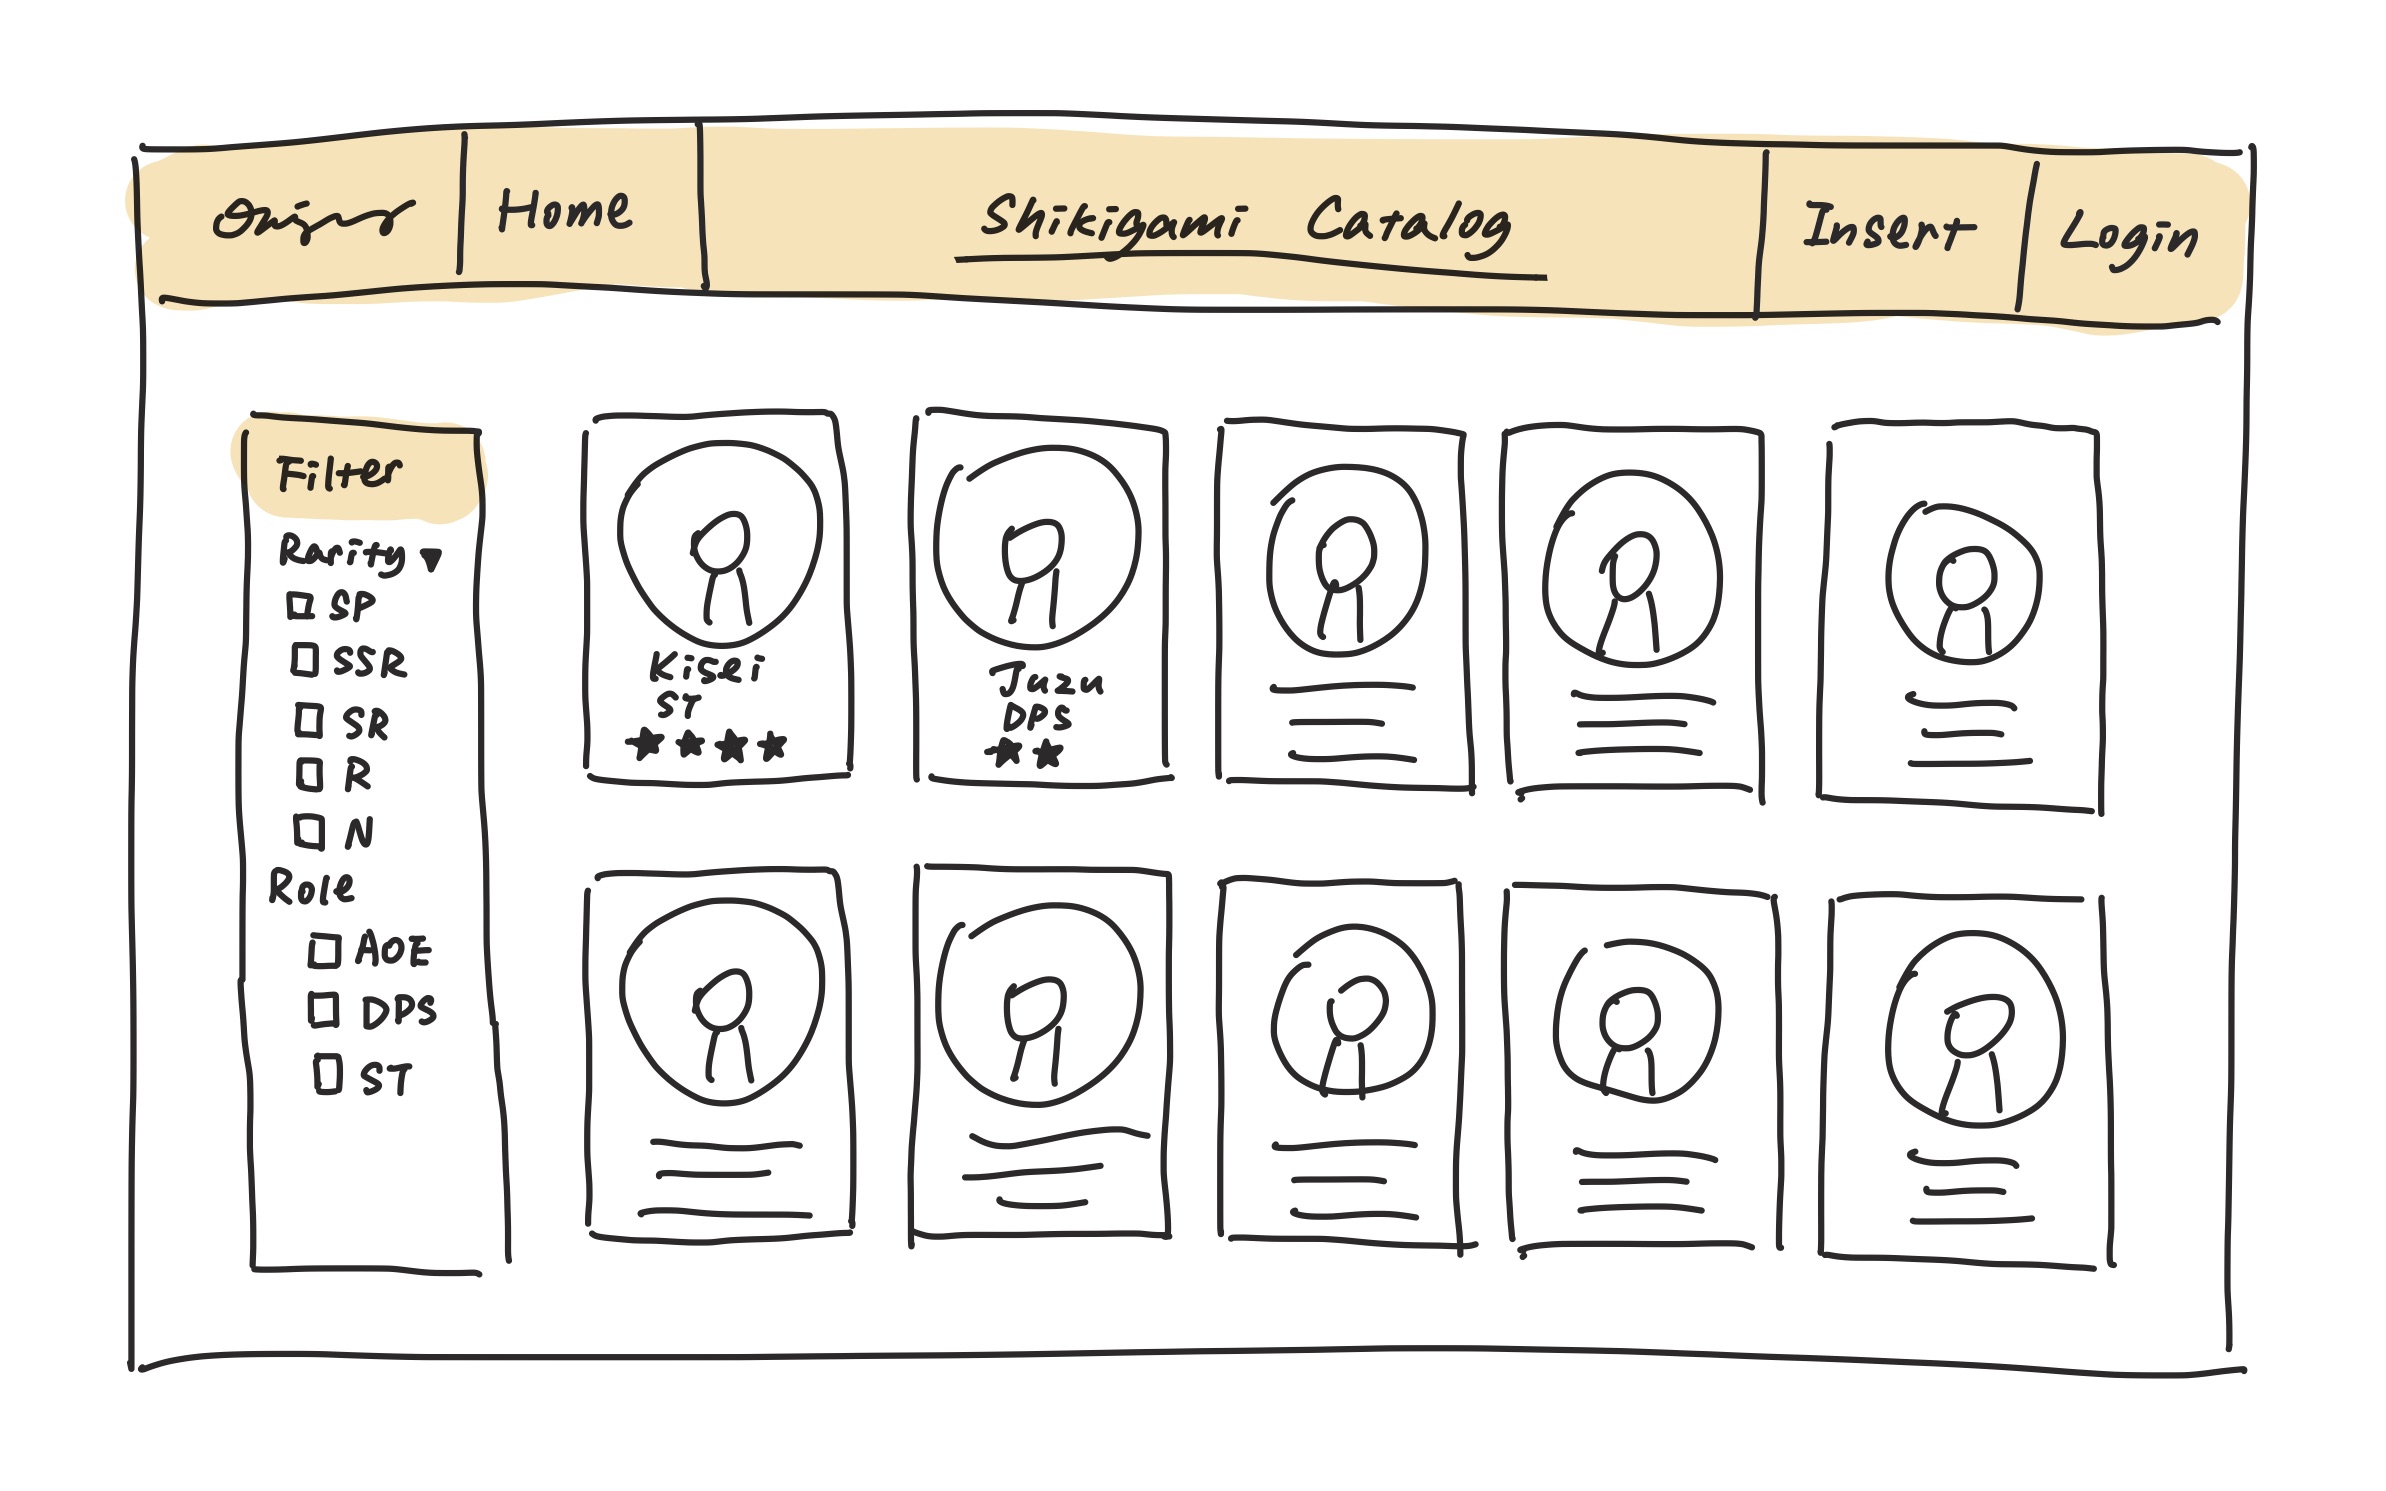 Home
Shikigami Catalog
Insert
Login
Filter
Rarity
SP
SSR
SR
R
N
Role
AOE
DPS
ST
Kisei
ST
DPS